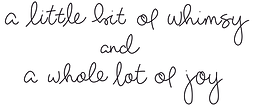 a little bit of whimsy
and
a whole lot of joy